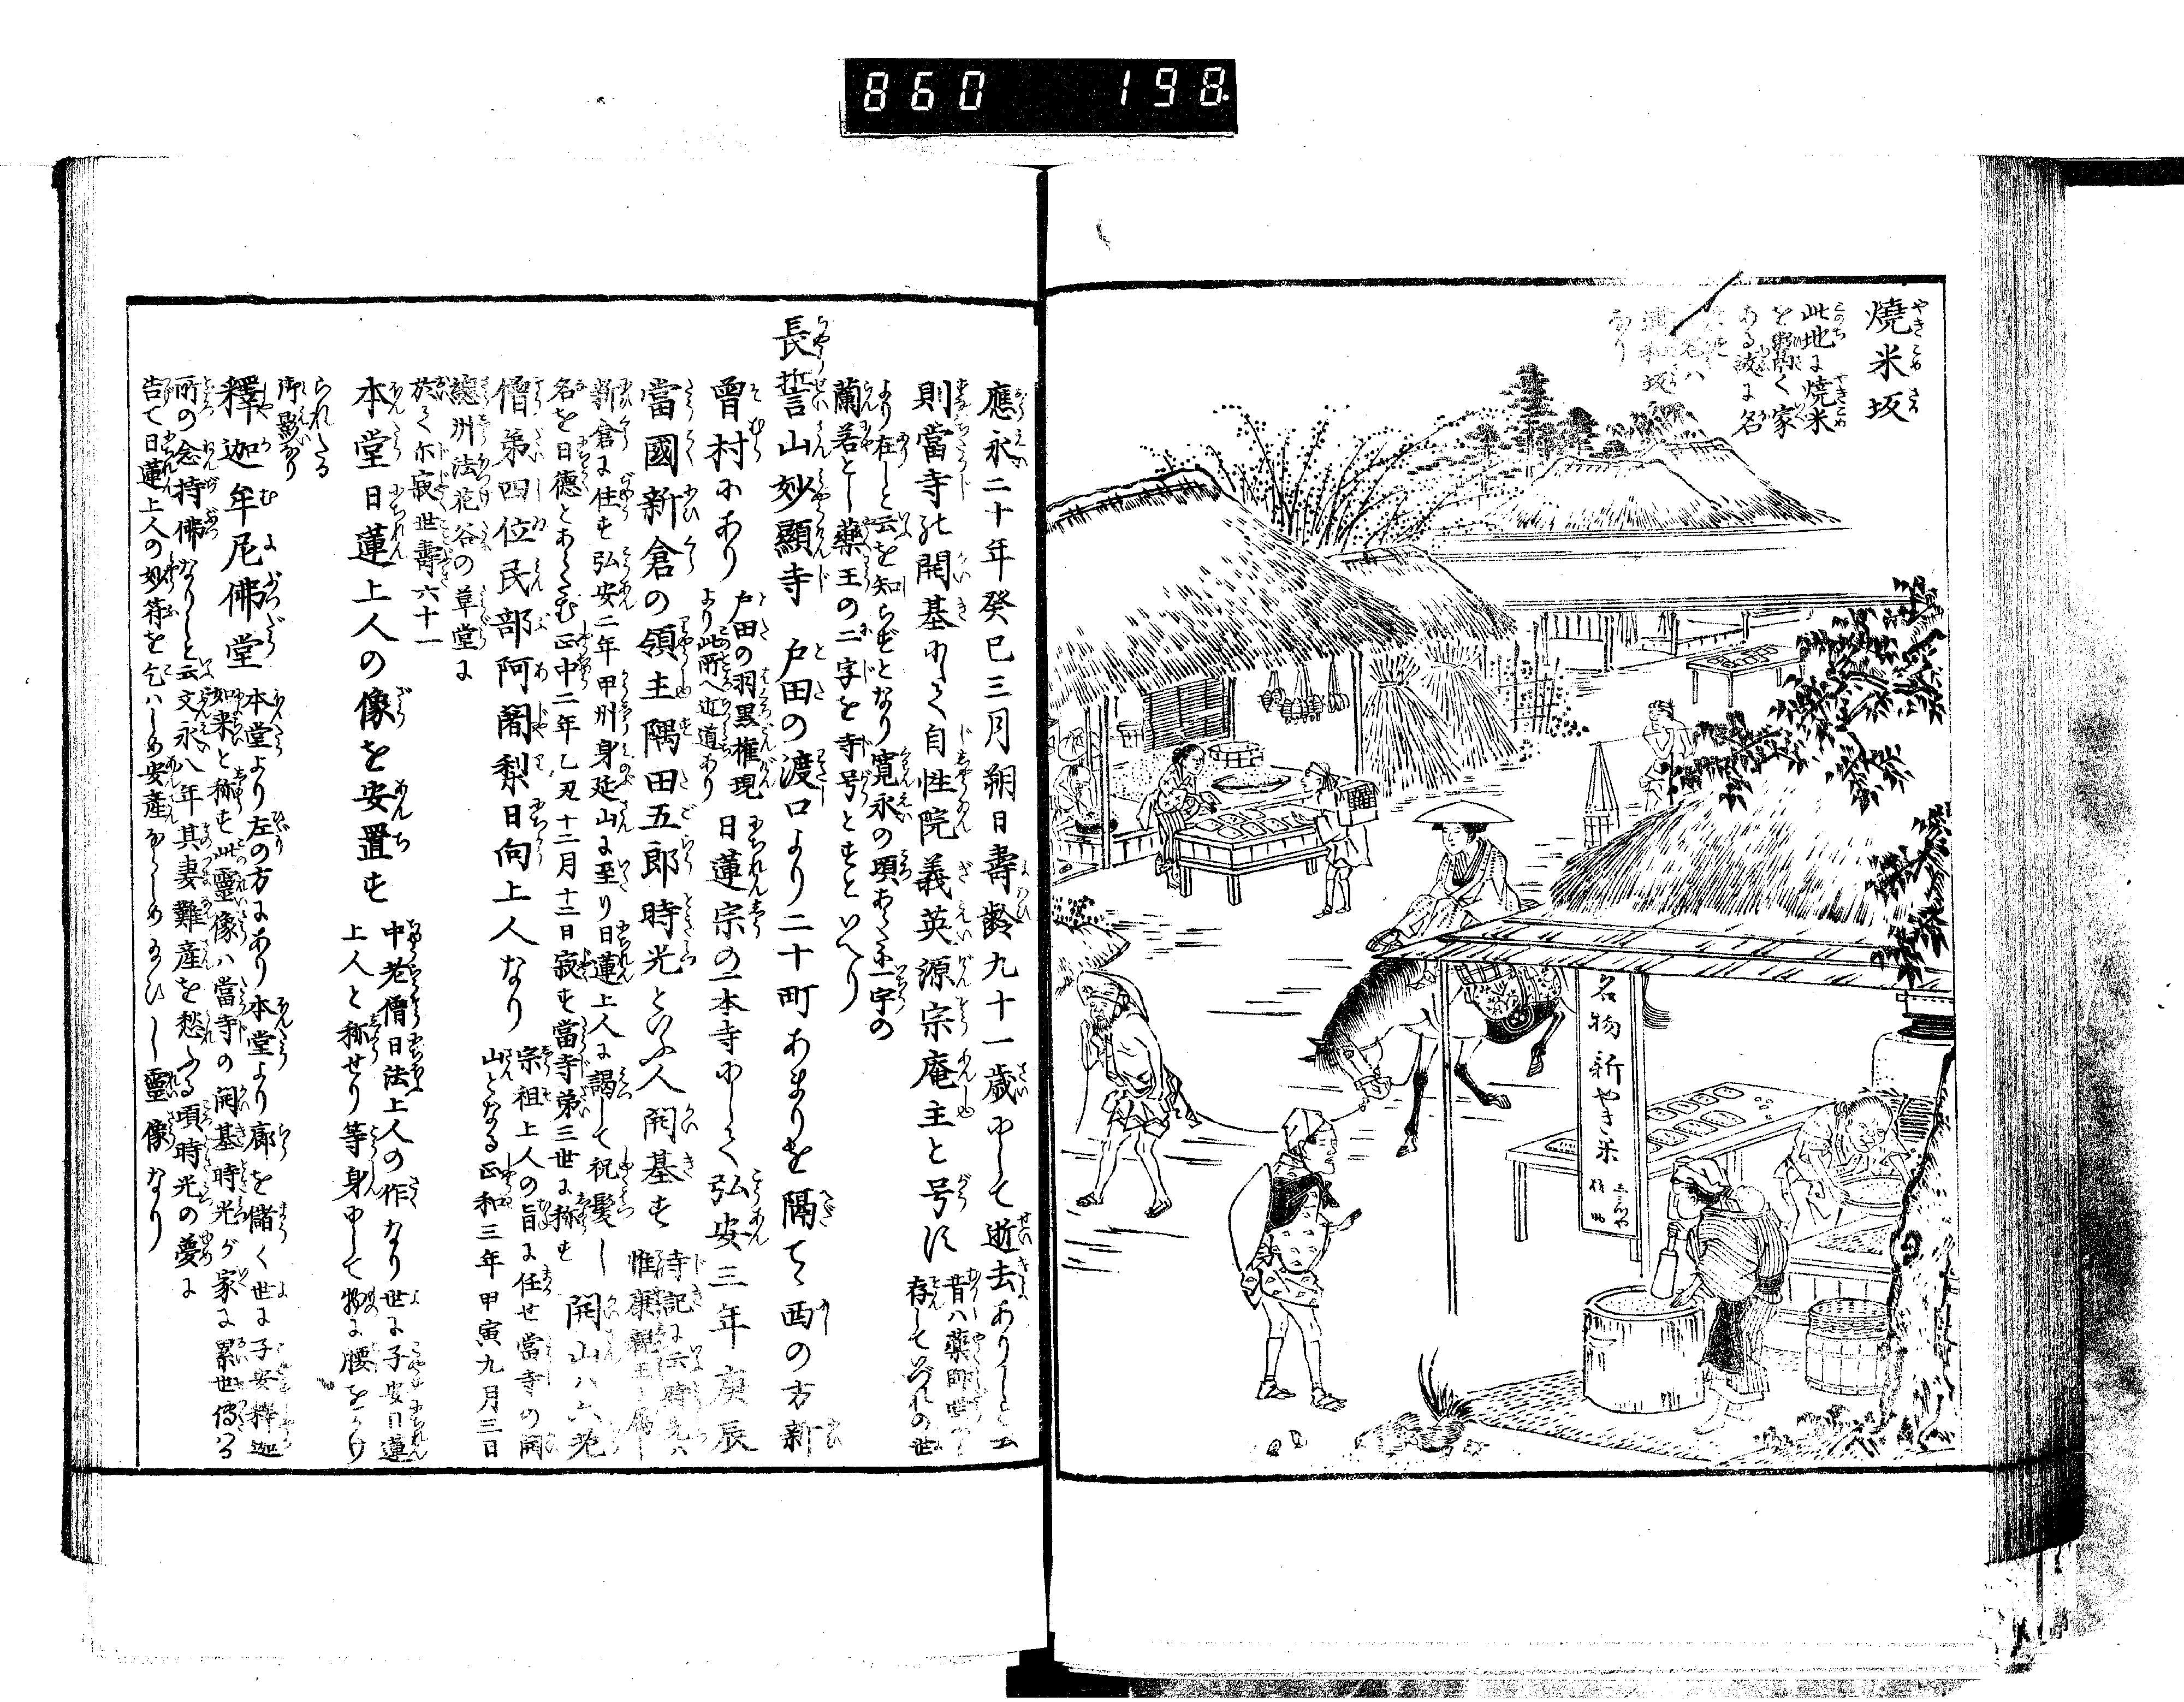 860 198
燒米坂
此地に燒米
を鬻く家
ある故に名
とす
浦和坂
なり
名物新やき米
應永二十年癸巳三月朔日壽齡九十一歳にして逝去ありしと云
則當寺の開基にして自性院義英源宗庵主と号す
昔ハ藥師堂の
存してその世
より在しと云を知らずとなり寛永の頃あらた一宇の
蘭若とし藥王の二字を寺号とすといへり
長誓山妙顯寺 戸田の渡口より二十町あまりを隔てゝ酉の方新
曽村にあり
戸田の羽黒権現
より此所へ近道あり
日蓮宗の一本寺にして弘安三年庚辰
當國新倉の領主隅田五郎時光といふ人開基す
寺記に云時光ハ
惟康親王
新倉に住す弘安二年甲州身延山に至り日蓮上人に謁して祝髪し
名を日德とあらたむ正中二年乙丑十二月十二日寂す當寺第三世に称す
開山ハ六老
僧第四位民部阿闍梨日向上人なり
宗祖上人の旨に任せ當寺の開
山となる正和三年甲寅九月三日
總洲法花谷の草堂に
於て示寂世壽六十一
本堂日蓮上人の像を安置す
中老僧日法上人の作なり世に子安日蓮
上人と称せり等身にして物に腰をかけ
られたる
御影なり
釋迦牟尼佛堂
本堂より左の方にあり本堂より廊を儲く世に子安釋迦
如来と称す此靈像ハ當寺の開基時光が家に累世傳はる
所の念持佛なりしと云文永八年其妻難産を愁ふる頃時光の夢に
告て日蓮上人の妙符を乞ハしめ安産なさしめ給ひし靈像なり